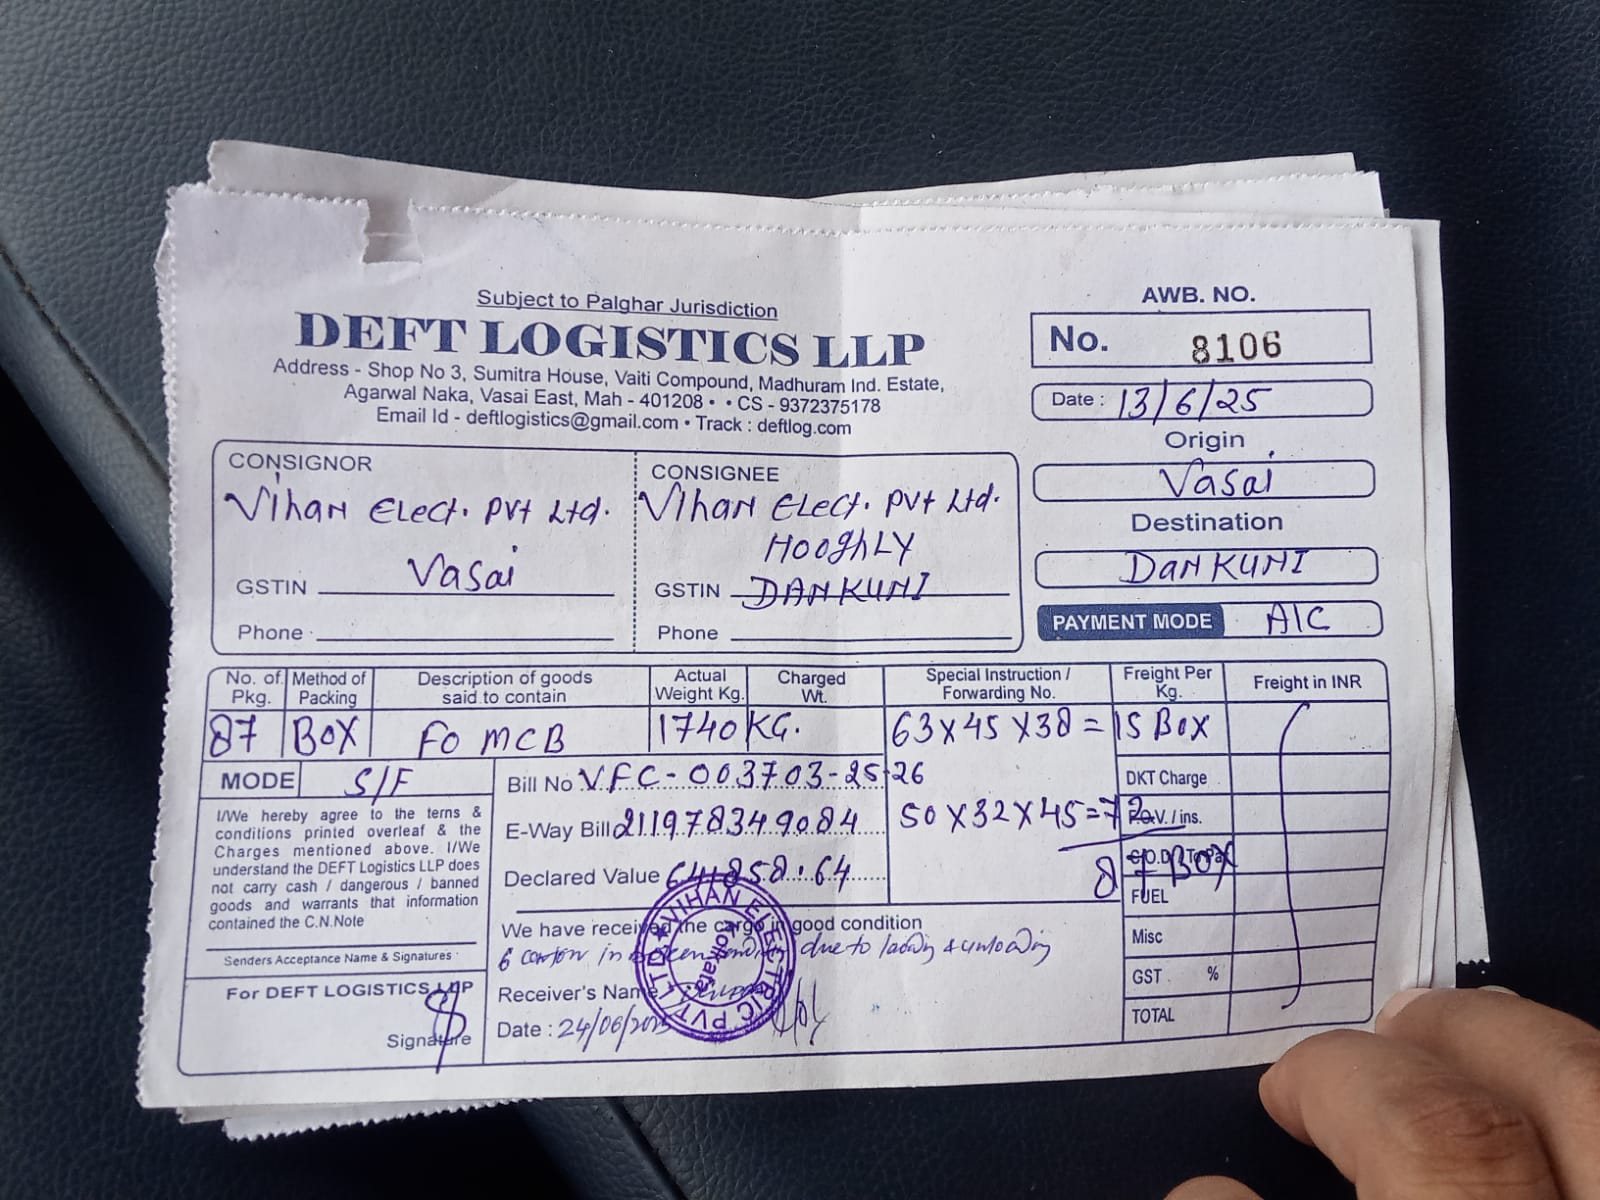 Subject to Palghar Jurisdiction
DEFT LOGISTICS LLP
Address - Shop No 3, Sumitra House, Vaiti Compound, Madhuram Ind. Estate,
Agarwal Naka, Vasai East, Mah - 401208 • • CS - 9372375178
Email Id - deftlogistics@gmail.com • Track : deftlog.com
AWB. NO.
No. 8106
Date : 13/6/25
Origin
Vasai
Destination
DANKUNI
PAYMENT MODE A/C
CONSIGNOR
Vihan Elect. Pvt Ltd.
Vasai
GSTIN
Phone
CONSIGNEE
Vihan Elect. Pvt Ltd.
HooghLY
GSTIN DANKUNI
Phone
No. of Pkg. Method of Packing Description of goods said to contain Actual Weight Kg. Charged Wt. Special Instruction / Forwarding No. Freight Per Kg. Freight in INR
87 BOX FO MCB 1740 KG. 63X45X38 = 15 BOX
50X32X45=72
87 BOX
MODE S/F
Bill No VFC-003703-25-26
E-Way Bill 211978349084
Declared Value
I/We hereby agree to the terns &
conditions printed overleaf & the
Charges mentioned above. I/We
understand the DEFT Logistics LLP does
not carry cash / dangerous / banned
goods and warrants that information
contained the C.N.Note
Senders Acceptance Name & Signatures
For DEFT LOGISTICS LLP
Signature
We have received the cargo in good condition
6 carton in broken due to loading & unloading
Receiver's Name
Date : 24/06/2025
VIHAN ELECTRIC PVT. LTD. ★
Kolkata
DKT Charge
R.O.V. / ins.
C.O.D. / To Pay
FUEL
Misc
GST %
TOTAL